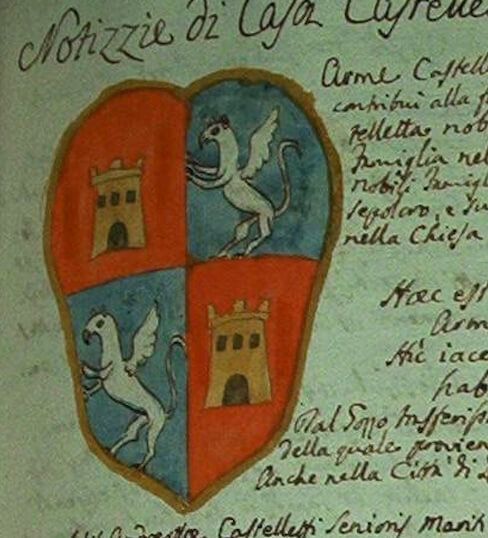 Notizzie di Casa Castelle
Arme Castell
contribuì alla f
relletta nob
famiglia nel
nobili famigl
sepolcro, e su
nella Chiesa
Haec est
Arm
Hic iace
hab
Dal
della quale provien
Anche nella Città di
Castelletti Senioris Marit